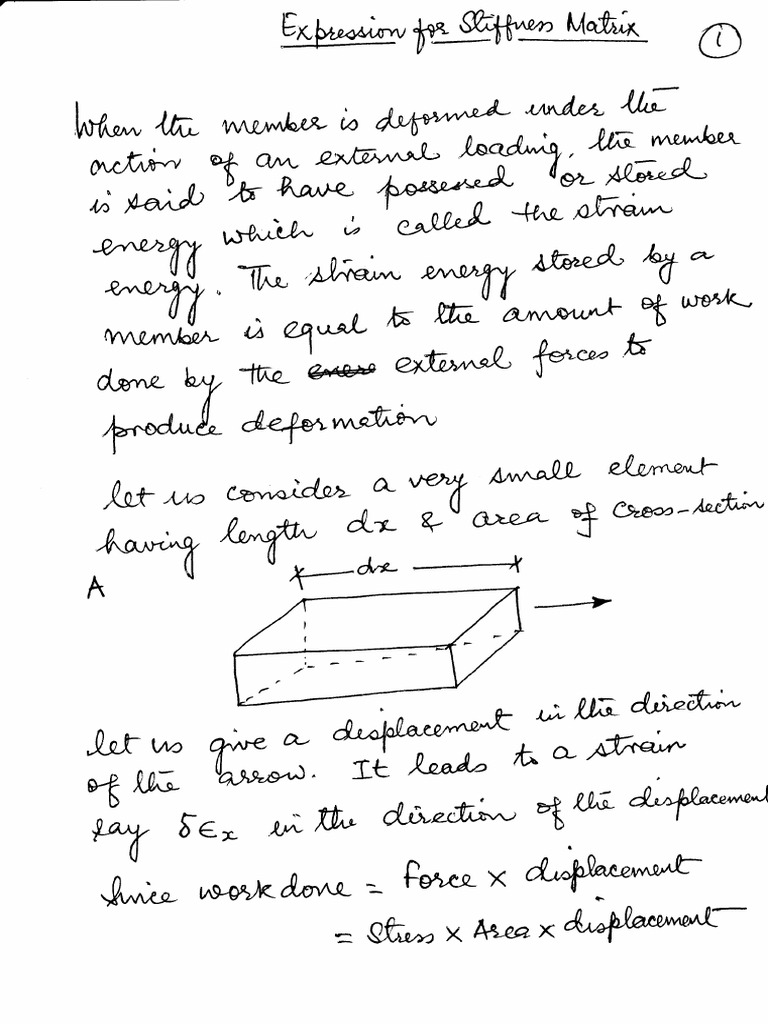 Expression for Stiffness Matrix
1
When the member is deformed under the
action of an external loading, the member
is said to have possessed or stored
energy which is called the strain
energy. The strain energy stored by a
member is equal to the amount of work
done by the external forces to
produce deformation
let us consider a very small element
having length dx & area of cross-section
A
dx
let us give a displacement in the direction
of the arrow. It leads to a strain
say δϵx in the direction of the displacement
Since work done = Force × displacement
= Stress × Area × displacement